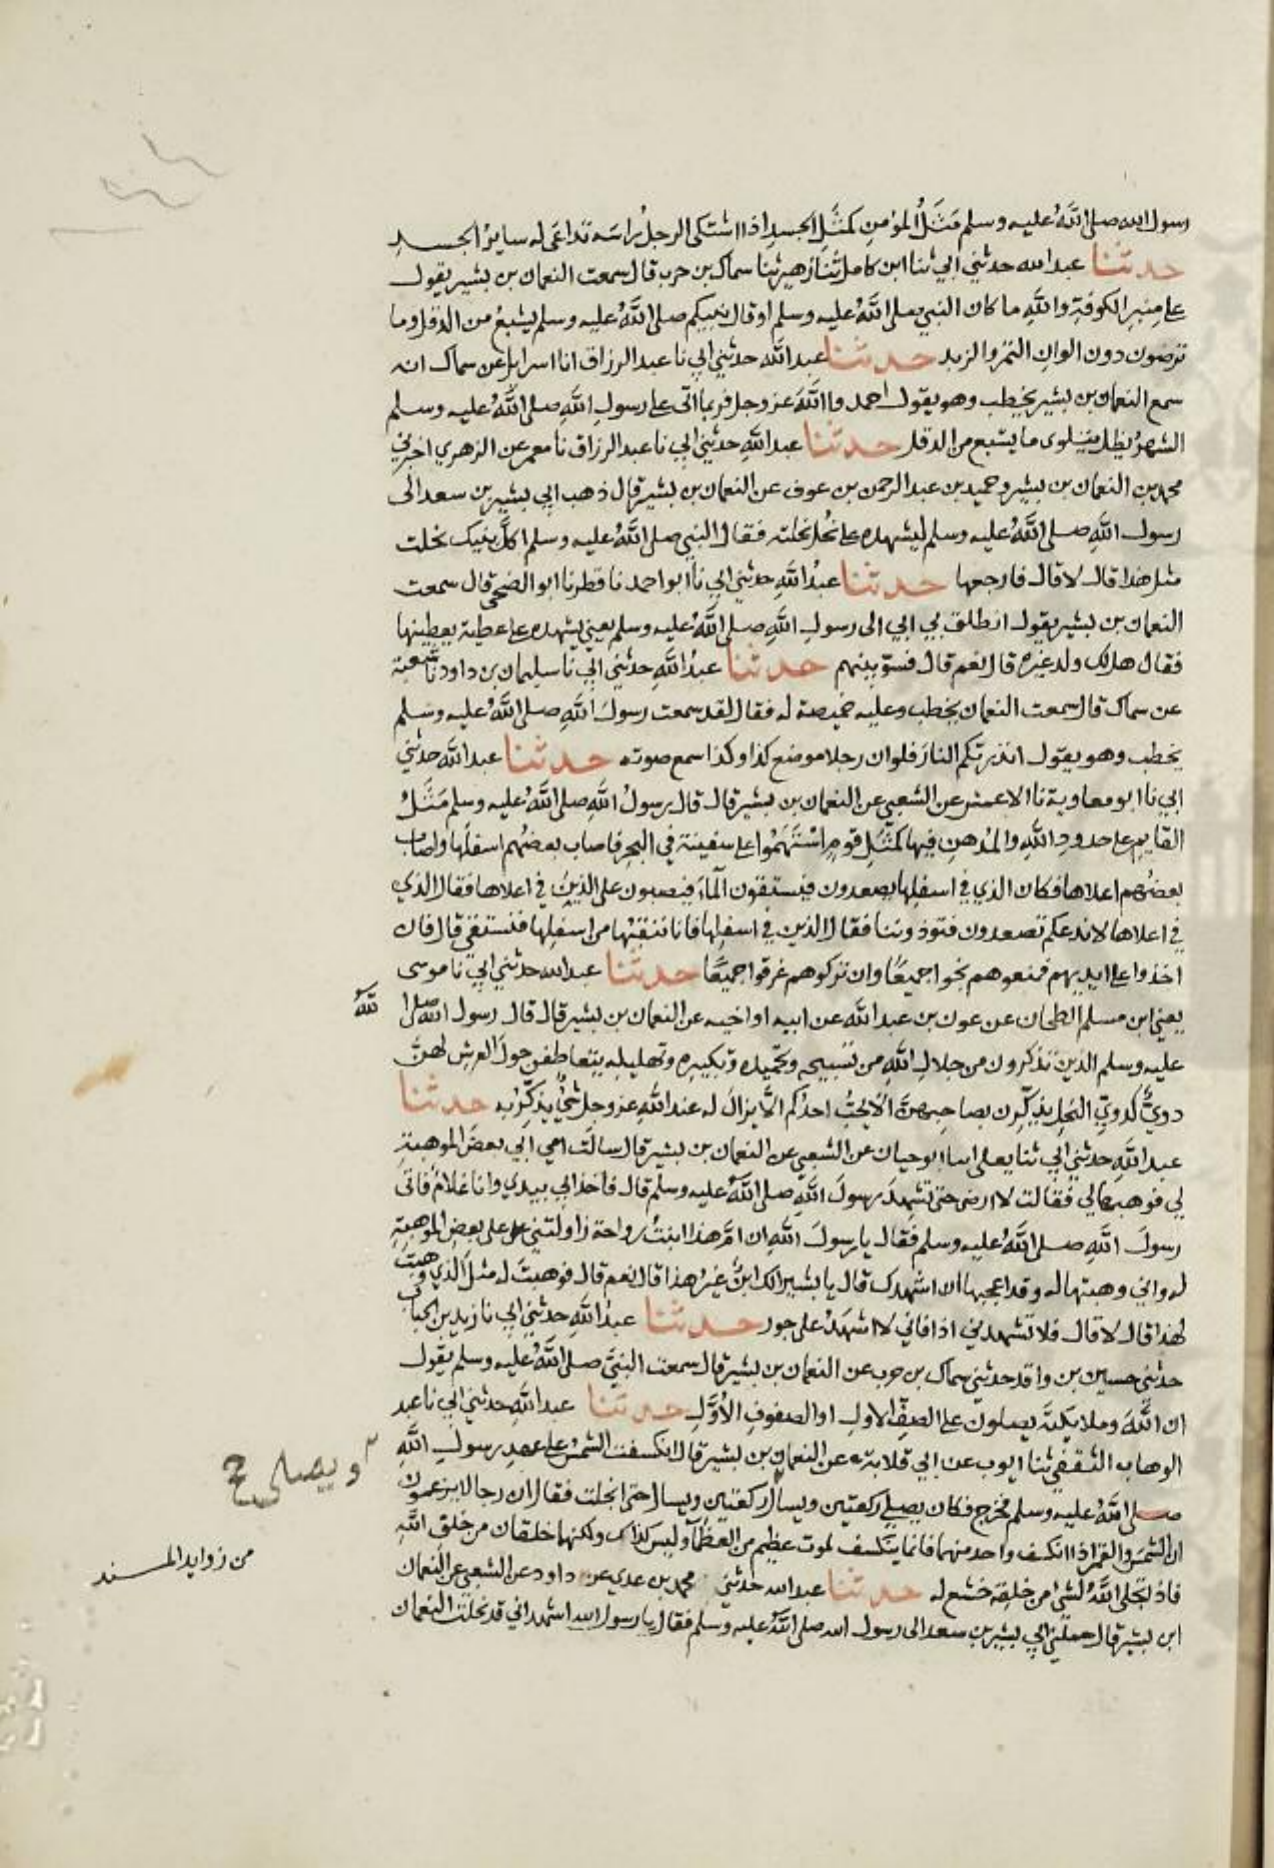 رسول الله صلى اللَّهُ عليه وسلم مَثَلُ المؤمنِ كمثَلِ الجسدِ اذا اشتكى الرجلُ راسَه تداعَى له سايرُ الجسدِ
حدثنا عبد الله حدثني ابي ثنا ابن كامل ثنا زهير ثنا سماك بن حرب قال سمعت النعمان بن بشير يقول
على منبرِ الكوفةِ واللَّهِ ما كان النبي صلى اللَّهُ عليه وسلم او قال نبيكم صلى اللَّهُ عليه وسلم يشبعُ من الدقل وما
ترضون دون الوانِ التمرِ والزبد حدثنا عبد اللَّه حدثني ابي نا عبد الرزاق انا اسرايل عن سماك انه
سمع النعمان بن بشير يخطب وهو يقول احمدوا اللَّهَ عز وجل فربما اتى على رسولِ اللَّهِ صلى اللَّهُ عليه وسلم
الشهرُ يظل يتلوى ما يشبع من الدقل حدثنا عبد اللَّهِ حدثني ابي نا عبد الرزاق نا معمر عن الزهري اخبرني
محمد بن النعمان بن بشير وحميد بن عبد الرحمن بن عوف عن النعمان بن بشير قال ذهب ابي بشير بن سعد الى
رسول اللَّهِ صلى اللَّهُ عليه وسلم ليشهده على نُحلٍ نحلنيه فقال النبي صلى اللَّهُ عليه وسلم اكلَّ بنيك نحلت
مثل هذا قال لا قال فارجعها حدثنا عبدُ اللَّهِ حدثني ابي نا ابو احمد نا فطر نا ابو الضحى قال سمعت
النعمان بن بشير يقول انطلق بي ابي الى رسولِ اللَّهِ صلى اللَّهُ عليه وسلم يعني يشهده على عطية يعطينيها
فقال هل لك ولد غيره قال نعم قال فسوِّ بينهم حدثنا عبدُ اللَّهِ حدثني ابي نا سليمان بن داود نا شعبة
عن سماك قال سمعت النعمان يخطب وعليه خميصة له فقال لقد سمعت رسولَ اللَّهِ صلى اللَّهُ عليه وسلم
يخطب وهو يقول انذرتكم النارَ فلو ان رجلا موضع كذا وكذا سمع صوته حدثنا عبد اللَّه حدثني
ابي نا ابو معاوية نا الاعمش عن الشعبي عن النعمان بن بشير قال قال رسولُ اللَّهِ صلى اللَّهُ عليه وسلم مَثَلُ
القايم على حدودِ اللَّهِ والمُدهنِ فيها كمثَلِ قومٍ اسْتَهَمُوا على سفينة في البحر فاصاب بعضُهم اسفلَها واصاب
بعضُهم اعلاها فكان الذي في اسفلِها يصعدون فيستقون الماءَ فيصبون على الذين في اعلاها فقال الذي
في اعلاها لا ندعكم تصعدون فتوذوننا فقال الذين في اسفلِها فانا ننقبها من اسفلِها فنستقي قال فان
اخذوا على ايديهم فمنعوهم نجوا جميعًا وان تركوهم غرقوا جميعًا حدثنا عبد الله حدثني ابي نا موسى
يعني ابن مسلم الطحان عن عون بن عبد اللَّه عن ابيه او اخيه عن النعمان بن بشير قال قال رسول الله صلى اللَّهُ
عليه وسلم الذين تذكرون من جلالِ اللَّهِ من تسبيحِه وتحميدِه وتكبيرِه وتهليلِه يتعاطفن حولَ العرشِ لهنَّ
دويٌّ كدويِّ النحلِ يذكِّرن بصاحبهنَّ الا يحبُّ احدُكم الَّا يزالَ له عند اللَّهِ عز وجل شيٌ يذكِّرُ به حدثنا
عبد اللَّهِ حدثني ابي ثنا يعلى انبا ابو حيان عن الشعبي عن النعمان بن بشير قال سالَت امي ابي بعضَ الموهبةِ
لي فوهبها لي فقالت لا ارضى حتى تُشهدَ رسولَ اللَّهِ صلى اللَّهُ عليه وسلم قال فاخذ ابي بيدي وانا غلامٌ فاتى
رسولَ اللَّهِ صلى اللَّهُ عليه وسلم فقال يا رسولَ اللَّهِ ان امَّ هذا ابنتُ رواحة زاولتني على بعضِ الموهبةِ
له واني وهبتها له وقد اعجبها ان اشهدك قال يا بشير الك ابنٌ غيرُ هذا قال نعم قال فوهبتَ له مثلَ الذي وهبتَ
لهذا قال لا قال فلا تُشهدني اذا فاني لا اشهَدُ على جور حدثنا عبدُ اللَّهِ حدثني ابي نا زيد بن الحباب
حدثني حسين بن واقد حدثني سماك بن حرب عن النعمان بن بشير قال سمعت النبيَّ صلى اللَّهُ عليه وسلم يقول
ان اللَّهَ وملايكتَه يصلون على الصفِّ الاول او الصفوفِ الاُوَلِ حدثنا عبد اللَّهِ حدثني ابي نا عبد
الوهاب الثقفي ثنا ايوب عن ابي قلابة عن النعمان بن بشير قال انكسفت الشمسُ على عهدِ رسولِ اللَّهِ
صلى اللَّهُ عليه وسلم فخرج فكان يصلي ركعتين ويسال ركعتين ويسال حتى انجلت فقال ان رجالا يزعمون
ويصلي خ
ان الشمسَ والقمرَ اذا انكسف واحد منهما فانما ينكسف لموت عظيمٍ من العظماءِ وليس كذلك ولكنهما خلقان من خلقِ اللَّهِ
فاذا تجلى اللَّهُ لشي من خلقِه خشع له حدثنا عبد الله حدثني محمد بن عدي عن داود عن الشعبي عن النعمان
من زوايد المسند
ابن بشير قال حملني ابي بشير بن سعد الى رسول الله صلى اللَّهُ عليه وسلم فقال يا رسول الله اشهد اني قد نحلت النعمان